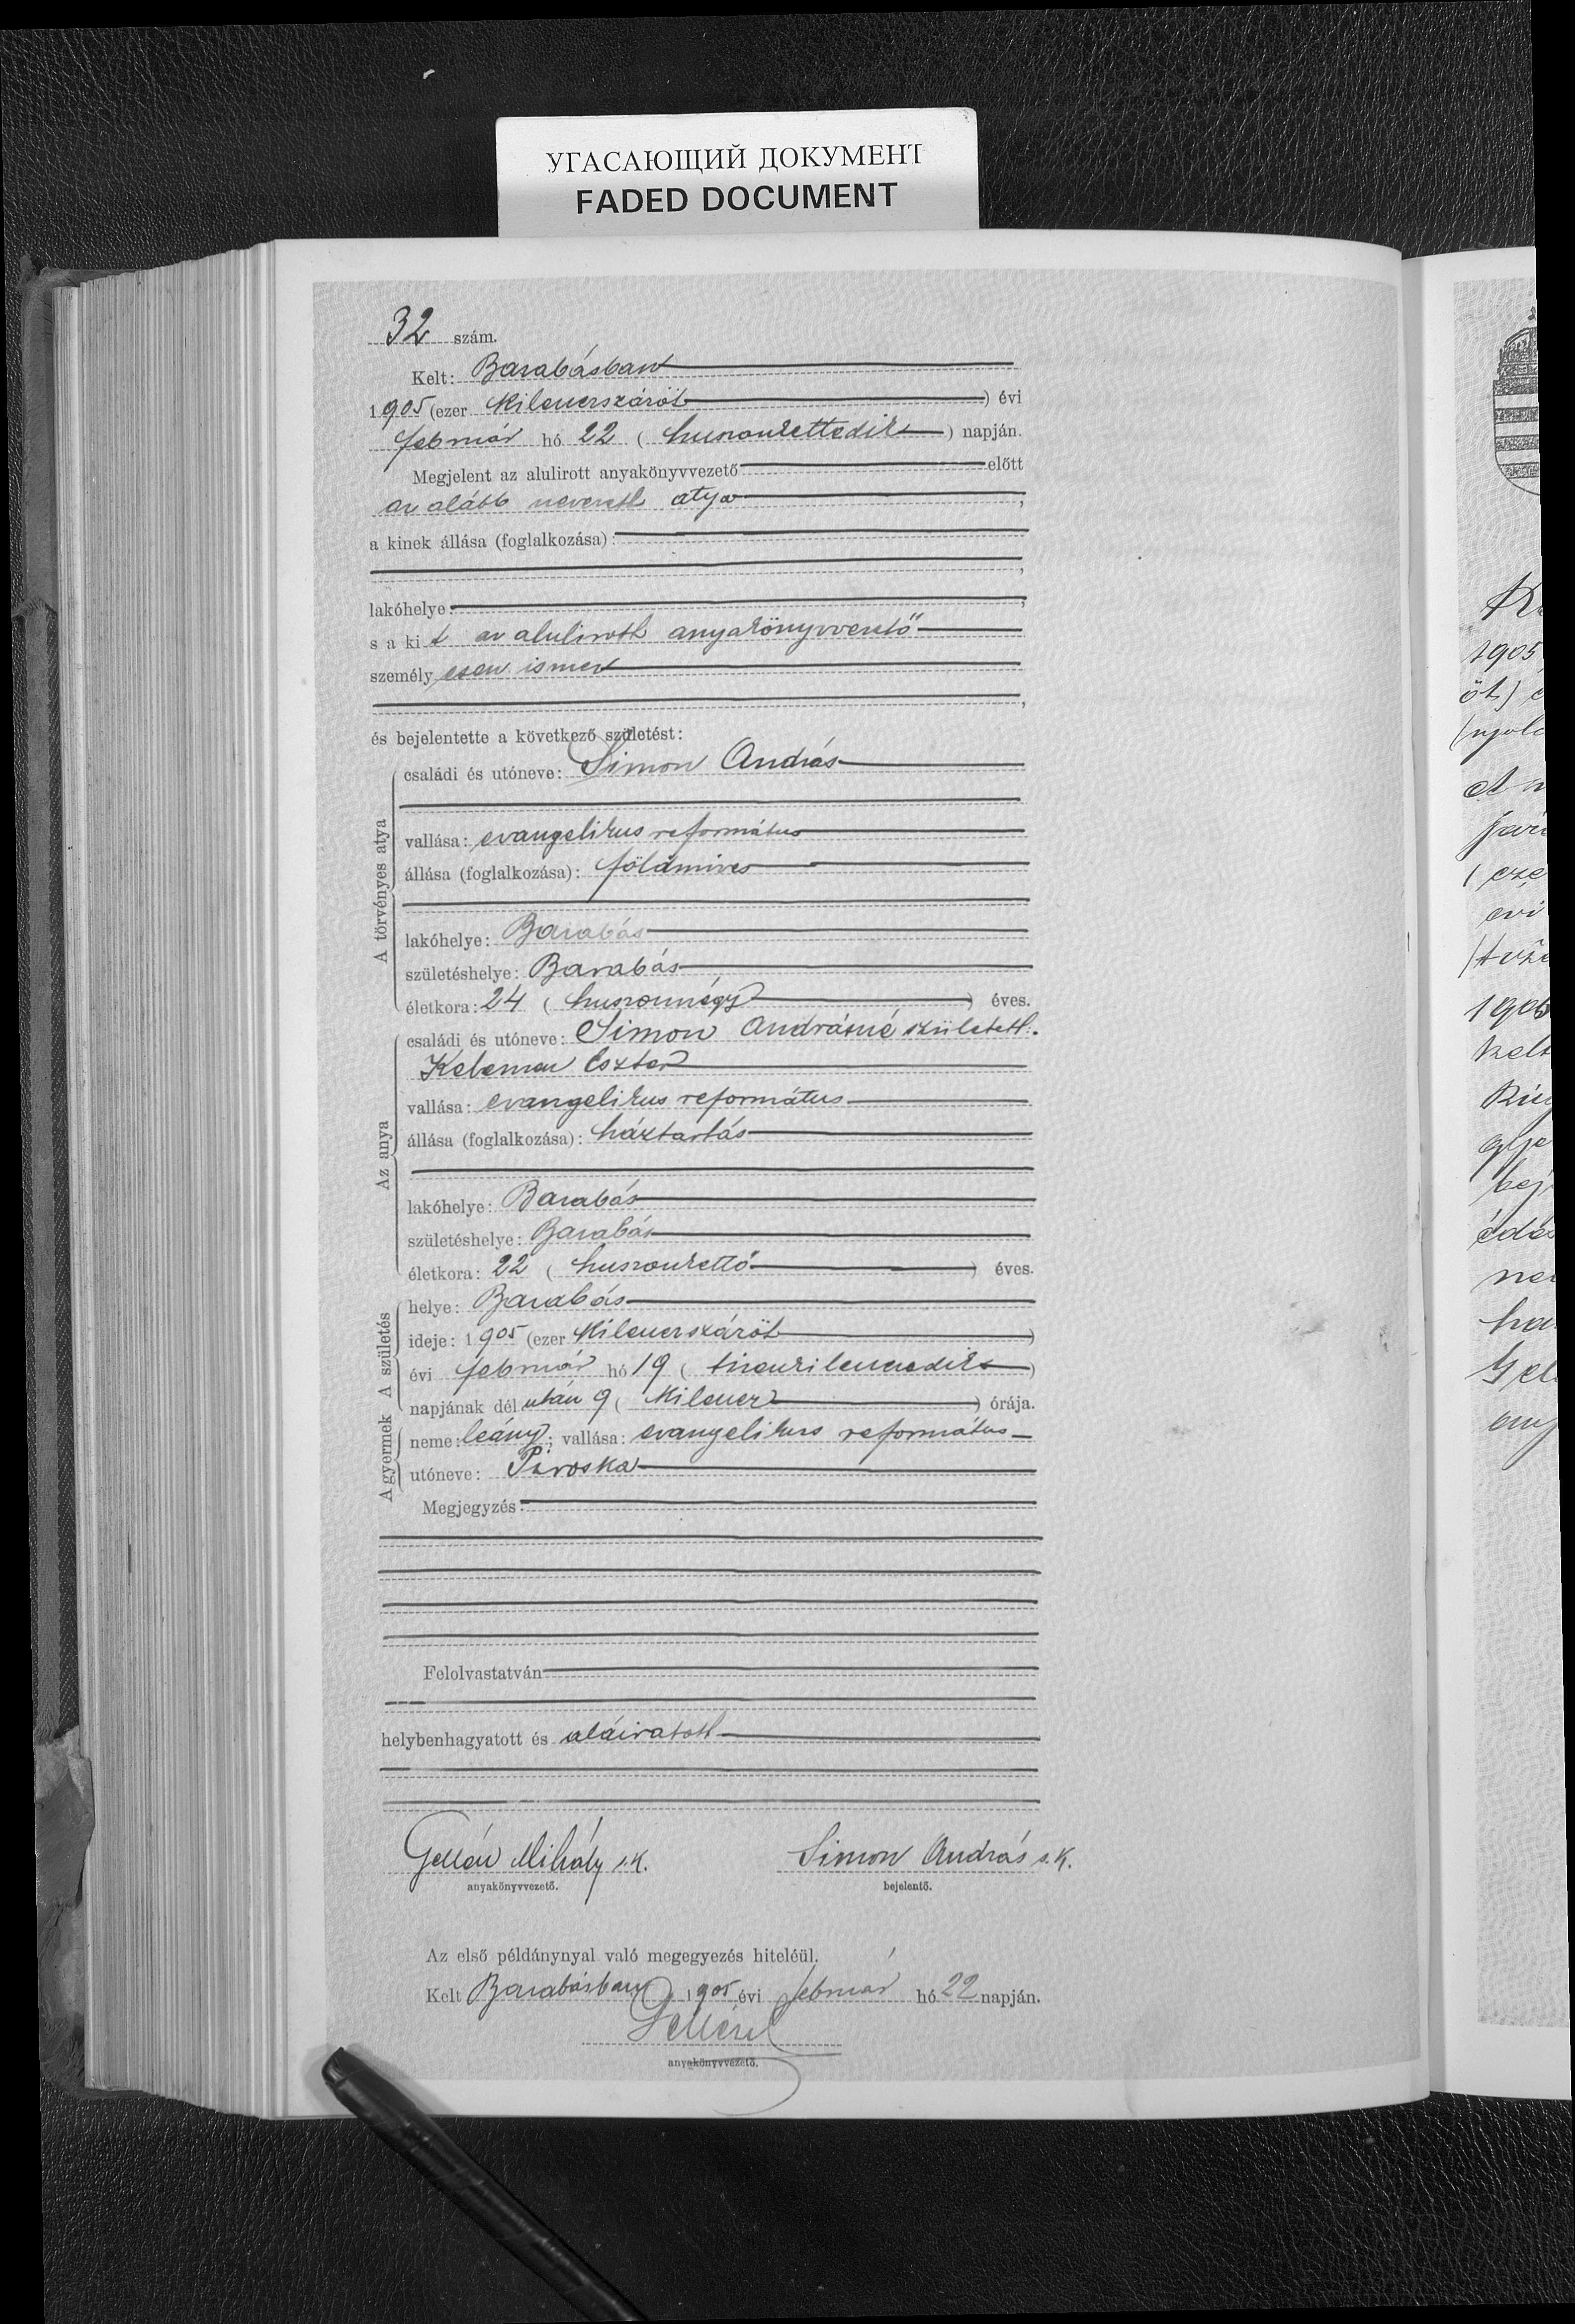 УГАСАЮЩИЙ ДОКУМЕНТ
FADED DOCUMENT
32 szám.
Kelt: Barabásban
1905 (ezer kilenczszázöt) évi
február hó 22 (huszonkettedik) napján.
Megjelent az alulirott anyakönyvvezető előtt
az alább nevezett atya,
a kinek állása (foglalkozása):
,
lakóhelye: ,
s a kit az alulirott anyakönyvvezető
személyesen ismer
,
és bejelentette a következő születést:
A törvényes atya
családi és utóneve: Simon András
vallása: evangelikus református
állása (foglalkozása): földmives
lakóhelye: Barabás
születéshelye: Barabás
életkora: 24 (huszonnégy) éves.
Az anya
családi és utóneve: Simon Andrásné született:
Kelemen Eszter
vallása: evangelikus református
állása (foglalkozása): háztartás
lakóhelye: Barabás
születéshelye: Barabás
életkora: 22 (huszonkettő) éves.
A születés
helye: Barabás
ideje: 1905 (ezer kilenczszázöt)
évi február hó 19 (tizenkilenczedik)
napjának dél után 9 (kilencz) órája.
A gyermek
neme: leány; vallása: evangelikus református
utóneve: Piroska
Megjegyzés:
Felolvastatván
helybenhagyatott és aláiratott
Mihály s.k. Simon András s.k.
anyakönyvvezető. bejelentő.
Az első példánynyal való megegyezés hiteléül.
Kelt Barabásban 1905 évi február hó 22 napján.
anyakönyvvezető.
1905
öt)
1905
kelt